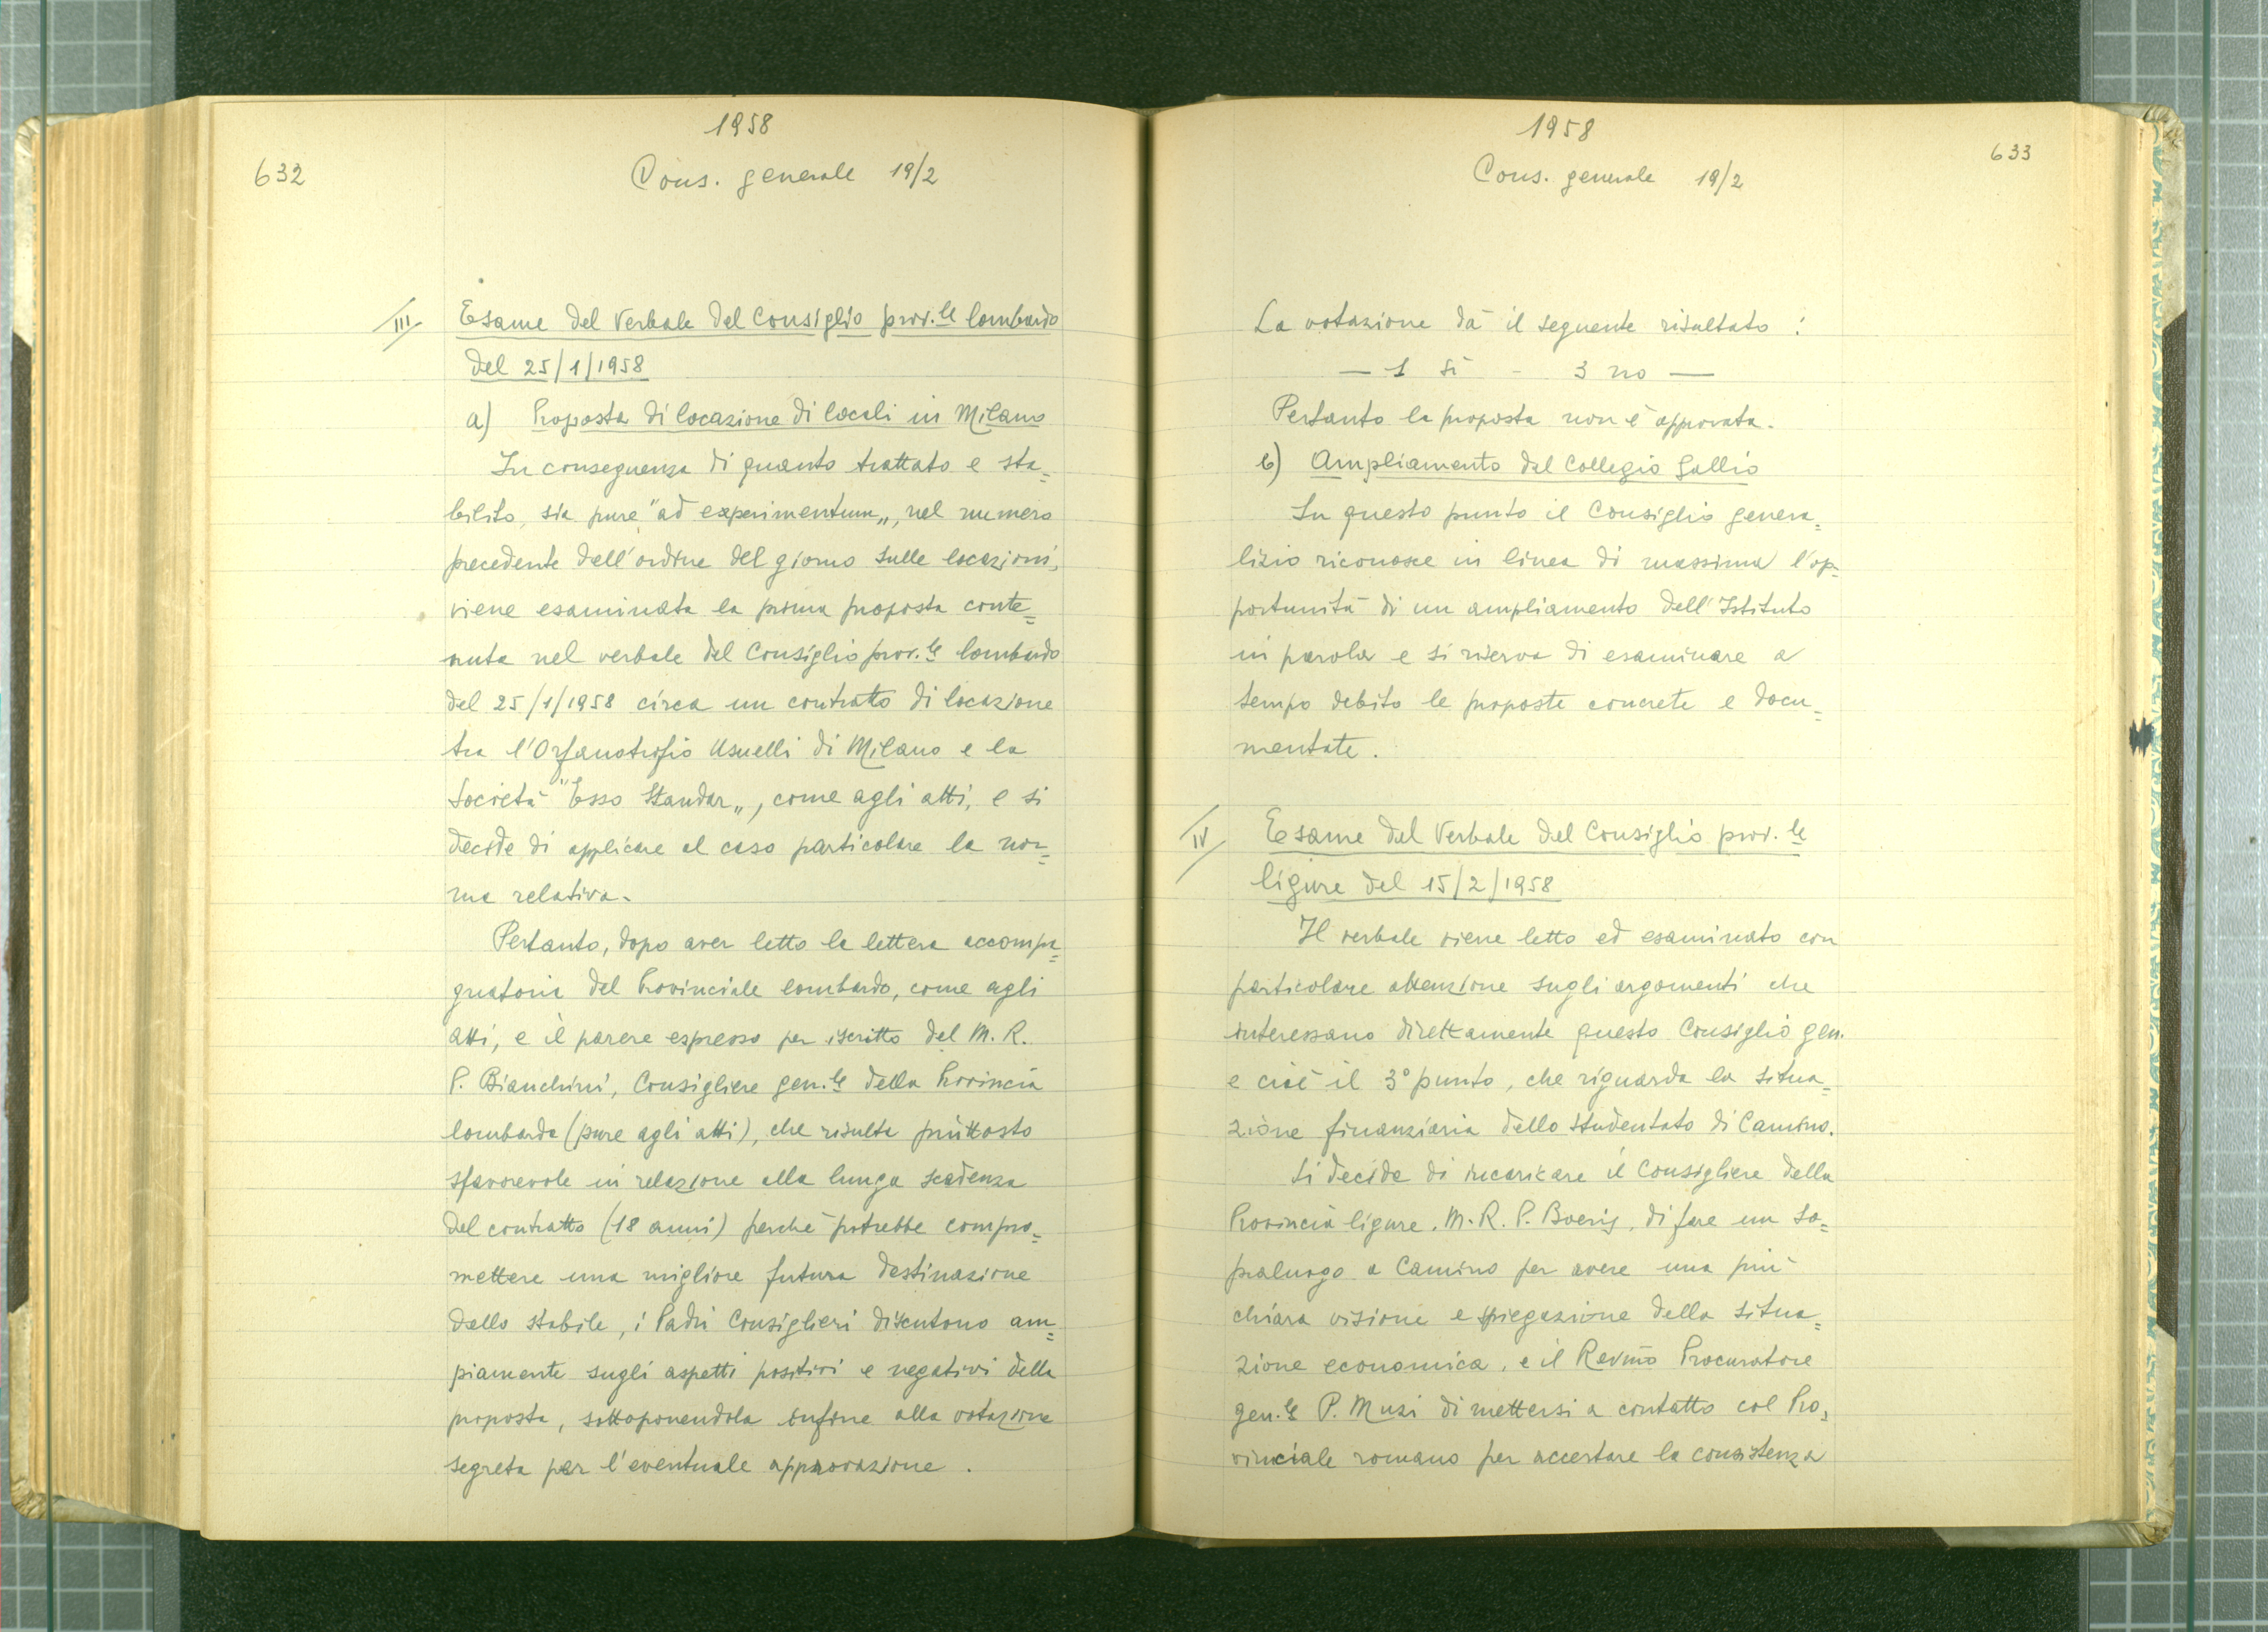 1958
632
Cons. generale 19/2
III
Esame del Verbale del Consiglio prov.le lombardo
del 25/1/1958
a) Proposta di locazione di locali in Milano
In conseguenza di quanto trattato e sta=
bilito, sia pure "ad experimentum„, nel numero
precedente dell'ordine del giorno sulle locazioni,
viene esaminata la prima proposta conte=
nuta nel verbale del Consiglio prov.le lombardo
del 25/1/1958 circa un contratto di locazione
tra l'Orfanotrofio Usuelli di Milano e la
Società "Esso Standar„, come agli atti, e si
decide di applicare al caso particolare la nor=
ma relativa.
Pertanto, dopo aver letto la lettera accompa=
gnatoria del Provinciale lombardo, come agli
atti, e il parere espresso per iscritto del M. R.
P. Bianchini, Consigliere gen.le della Provincia
lombarda (pure agli atti), che risulta piùttosto
sfavorevole in relazione alla lunga scadenza
del contratto (18 anni) perché potrebbe compro=
mettere una migliore futura destinazione
dello stabile, i Padri Consiglieri discutono am=
piamente sugli aspetti positivi e negativi della
proposta, sottoponendola infine alla votazione
segreta per l'eventuale approvazione.
1958
633
Cons. generale 19/2
La votazione dà il seguente risultato:
— 1 sì - 3 no —
Pertanto la proposta non è approvata.
b) Ampliamento del Collegio Gallio
In questo punto il Consiglio genera=
lizio riconosce in linea di massima l'op=
portunità di un ampliamento dell'Istituto
in parola e si riserva di esaminare a
tempo debito le proposte concrete e docu=
mentate.
IV
Esame del Verbale del Consiglio prov.le
ligure del 15/2/1958
Il verbale viene letto ed esaminato con
particolare attenzione sugli argomenti che
interessano direttamente questo Consiglio gen.
e cioè il 3° punto, che riguarda la situa=
zione finanziaria dello studentato di Camino.
Si decide di incaricare il Consigliere della
Provincia ligure, M. R. P. Boeris, di fare un so=
praluogo a Camino per avere una più
chiara visione e spiegazione della situa=
zione economica, e il Rev.mo Procuratore
gen.le P. Muzi di mettersi a contatto col Pro=
vinciale romano per accertare la consistenza